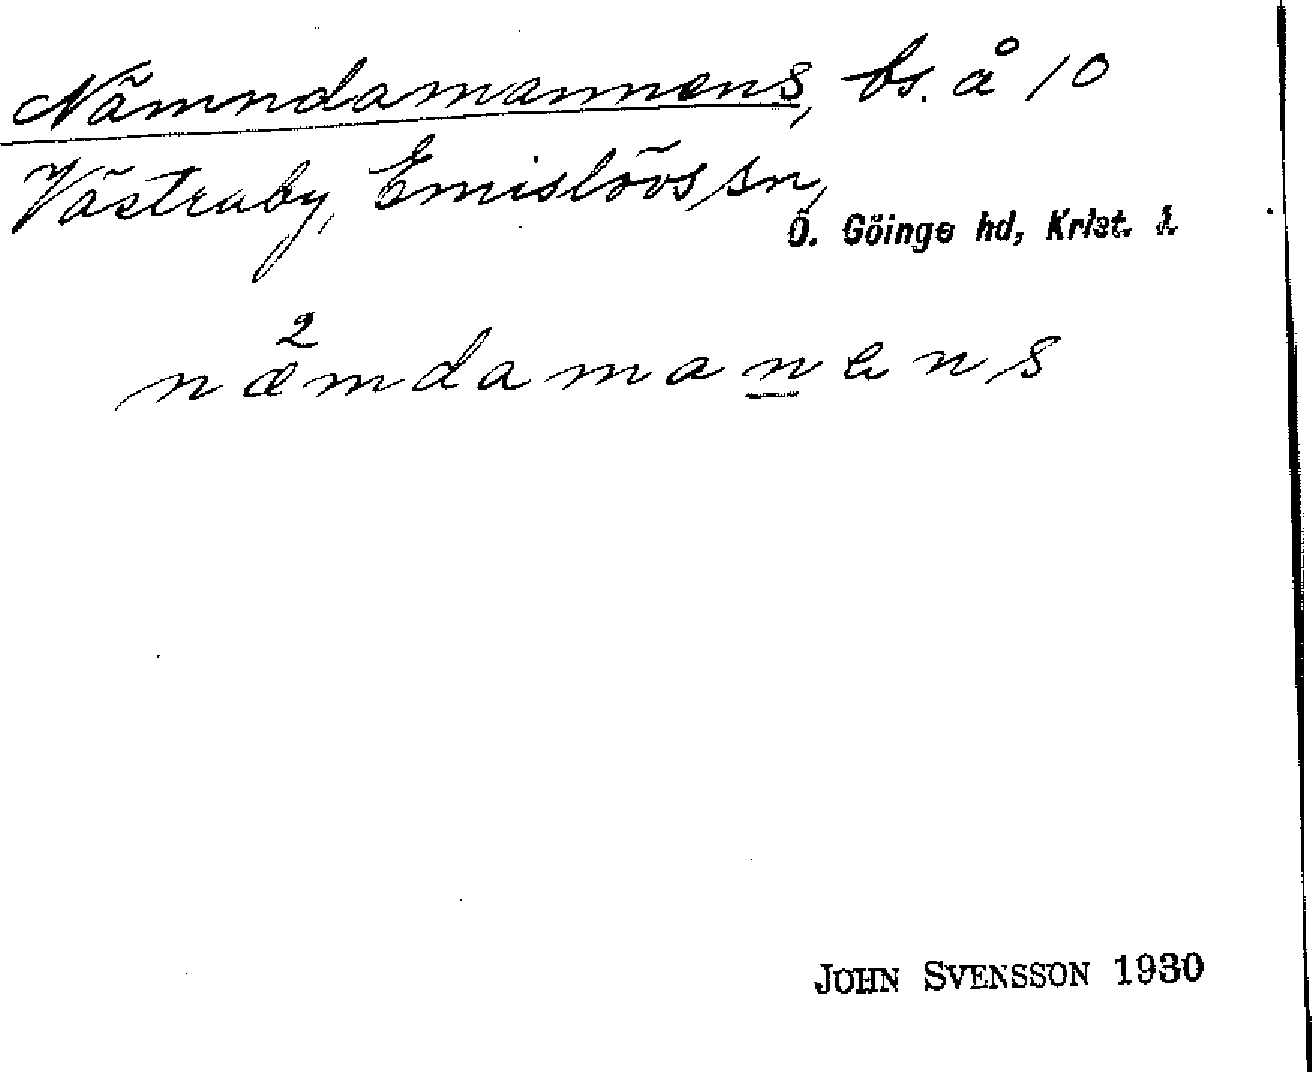 Nämndamannens, bs. å 10
Västraby, Emislövs sn,
Ö. Göinge hd, Krist. l.
2
næmdamanens
JOHN SVENSSON 1930